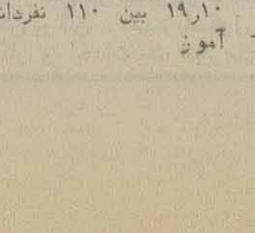 ۱۰ر۱۹ بین ۱۱۰ نفردانش
آموز